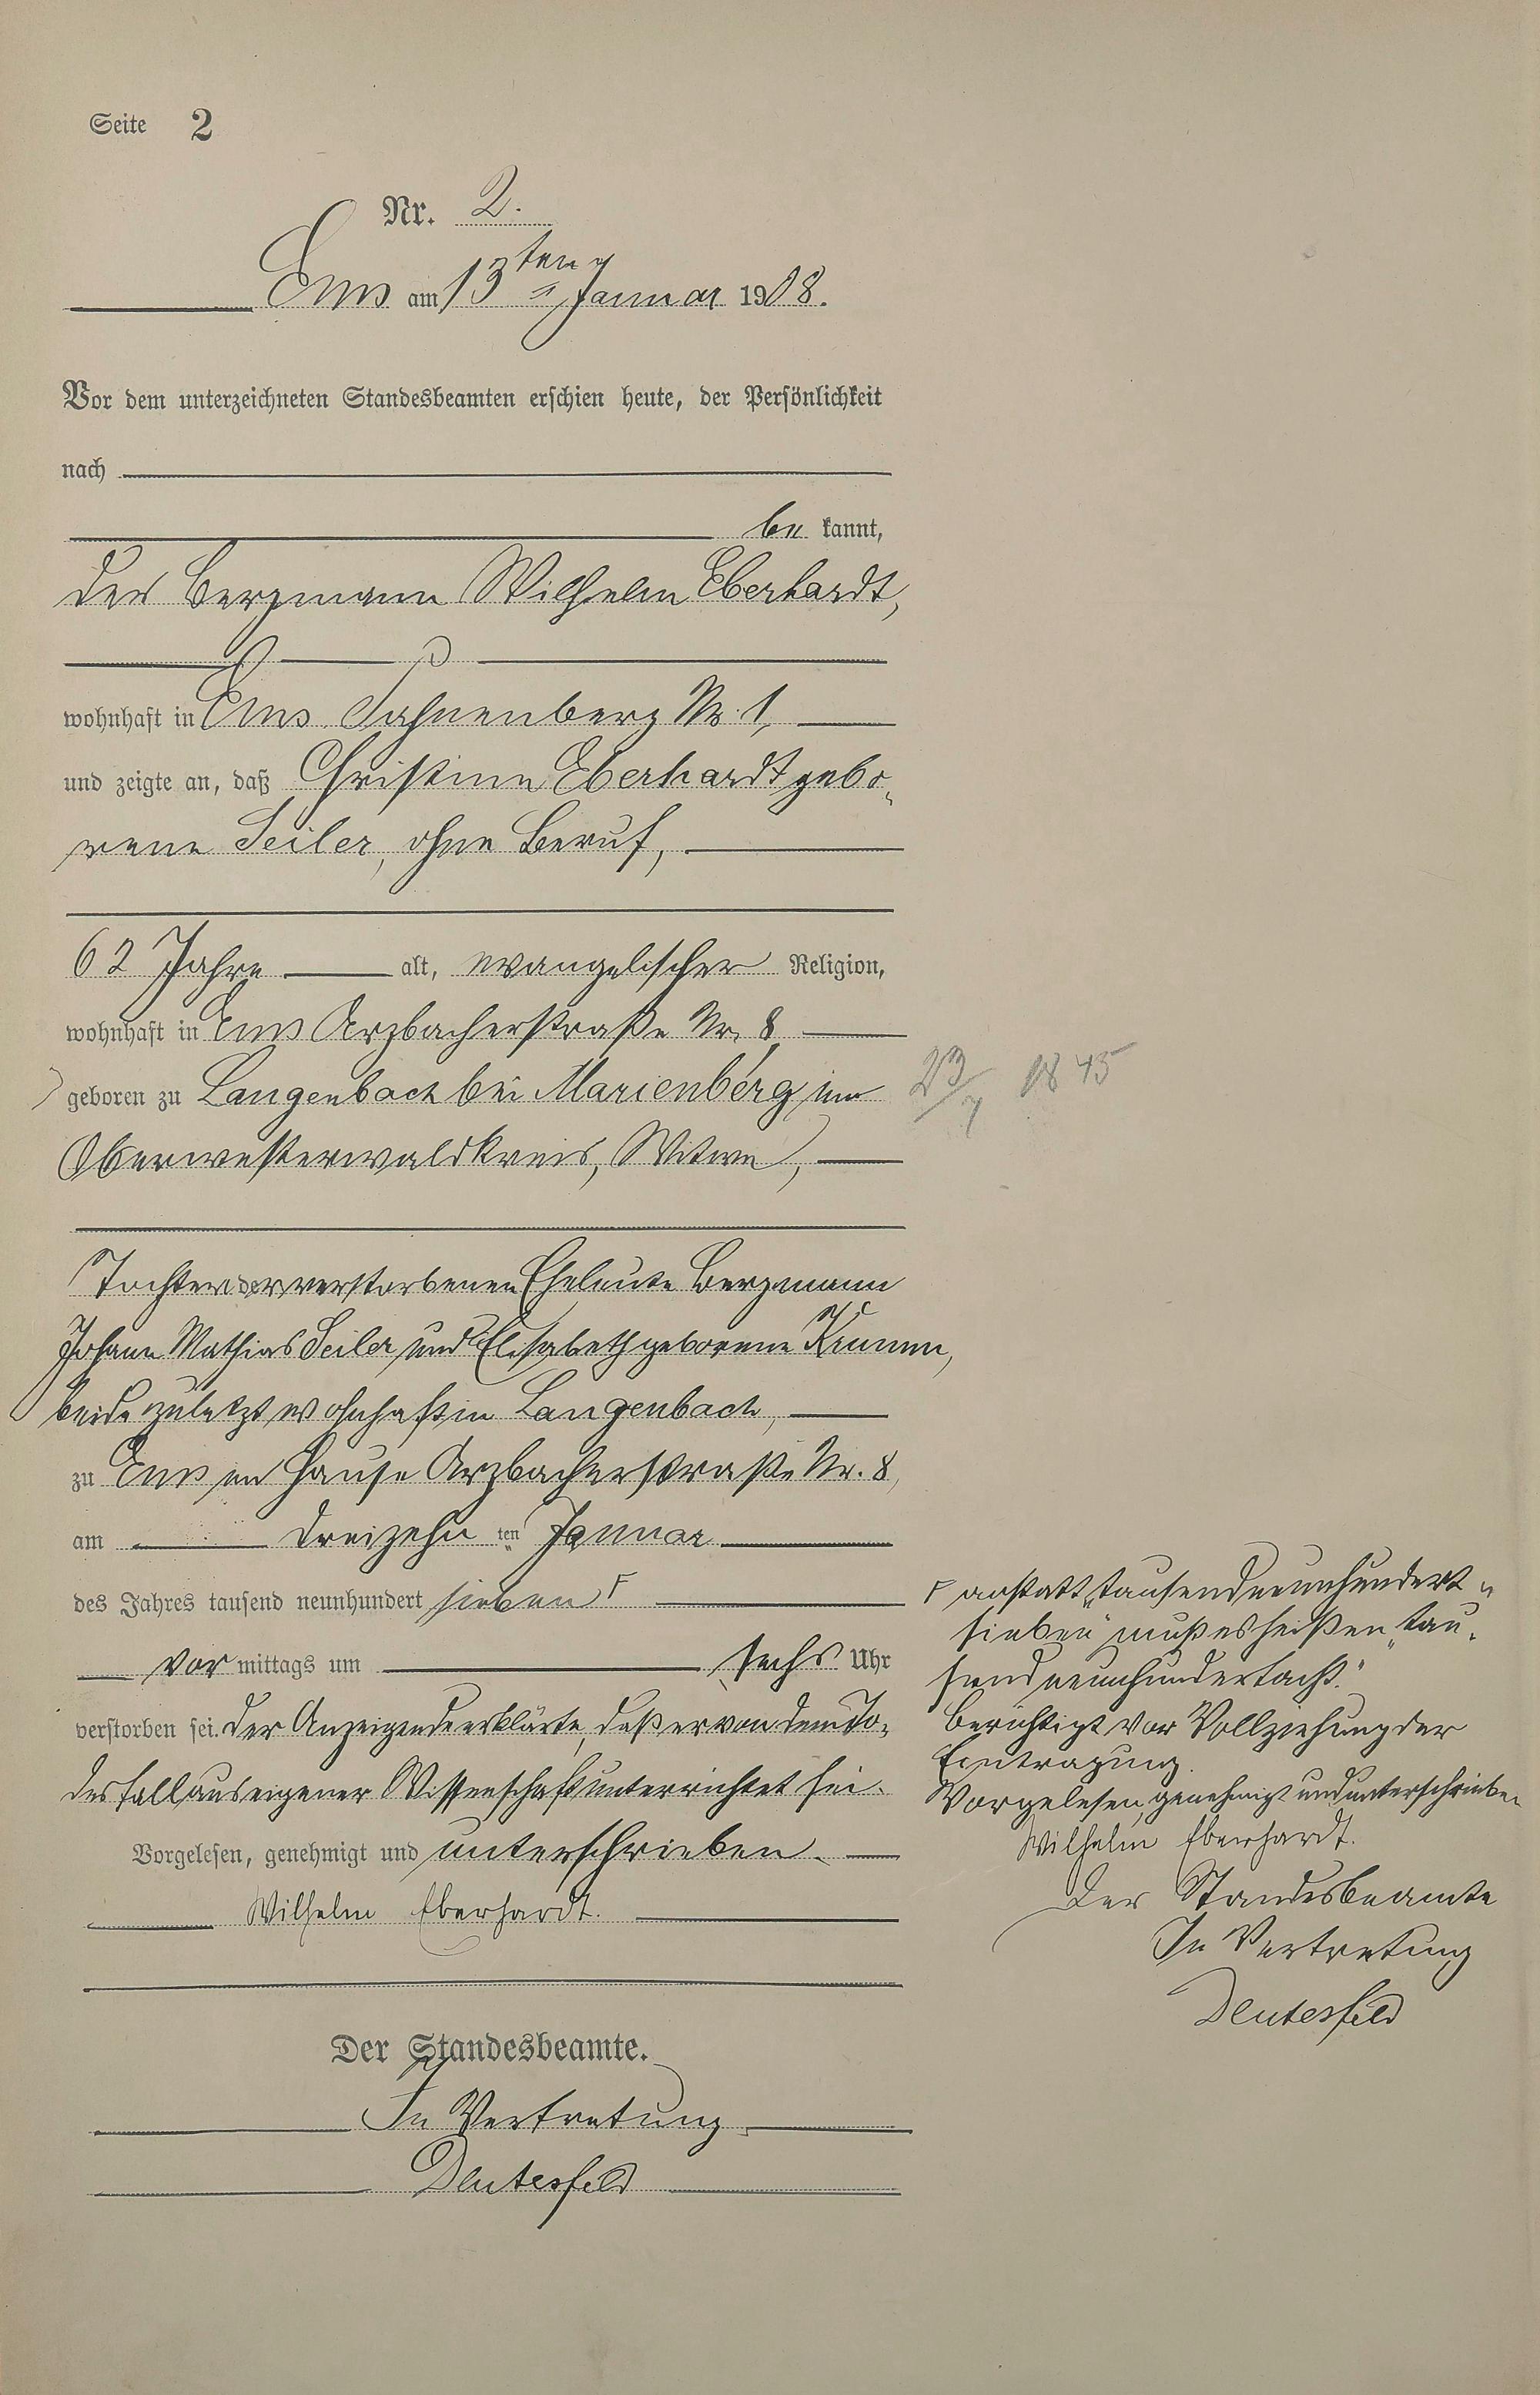 Seite 2
Nr. 2.
Ems am 13ten Januar 1908.
Vor dem unterzeichneten Standesbeamten erschien heute, der Persönlichkeit
nach
be kannt,
der Bergmann Wilhelm Eberhardt,
wohnhaft in Ems Nr. 1,
und zeigte an, daß Christine Eberhardt gebo-
rene Seiler, ohne Beruf,
62 Jahre alt, evangelischer Religion,
wohnhaft in Ems Arzbacherstraße Nr. 8,
geboren zu Langenbach bei Marienberg im
23/7 1845
Oberwesterwaldkreis, Witwe,
Tochter der verstorbenen Eheleute Bergmann
Johann Mathias Seiler und Elisabeth geborene Krumm,
beide zuletzt wohnhaft in Langenbach,
zu Ems im Hause Arzbacherstraße Nr. 8,
am dreizehn ten Januar
des Jahres tausend neunhundert sieben ┌
vor mittags um sechs Uhr
verstorben sei. Der Anzeigende erklärte, daß er von dem To-
desfall aus eigener Wissenschaft unterrichtet sei.
Vorgelesen, genehmigt und unterschrieben.
Wilhelm Eberhardt.
Der Standesbeamte.
In Vertretung
Deutesfeld
┌ anstatt „tausendneunhundert-
sieben" muß es heißen „tau-
sendneunhundertacht."
Berichtigt vor Vollziehung der
Eintragung.
Vorgelesen, genehmigt und unterschrieben
Wilhelm Eberhardt.
Der Standesbeamte
In Vertretung
Deutesfeld